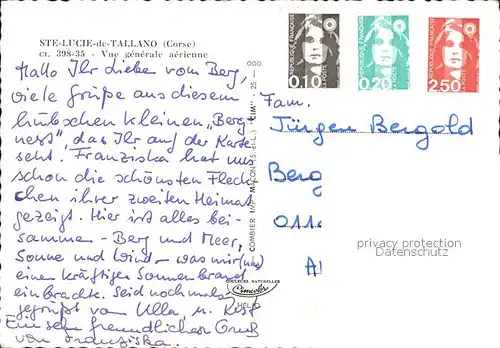 STE-LUCIE-de-TALLANO (Corse)
CL. 398-35 - Vue générale aérienne
Hallo Ihr Lieben vom Berg,
viele Grüße aus diesem
hübschen kleinen "Berg-
nest", das Ihr auf der Karte
seht. Franziska hat uns
schon die schönsten Fleck-
chen ihrer zweiten Heimat
gezeigt. Hier ist alles bei-
sammen - Berg und Meer,
Sonne und Wind - was mir (uns)
einen kräftigen Sonnenbrand
einbrachte. Seid nochmals
gegrüßt von Ulla u.
Ein sehr freundlicher Gruß
von Franziska.
COMBIER IMP. MACON (S.-&-L.) "CIM"
COULEURS NATURELLES
HELIO
REPUBLIQUE FRANÇAISE
0,10
LA POSTE
REPUBLIQUE FRANÇAISE
0,20
LA POSTE
REPUBLIQUE FRANÇAISE
2,50
LA POSTE
Fam.
Jürgen Bergold
Berg
011
privacy protection
Datenschutz